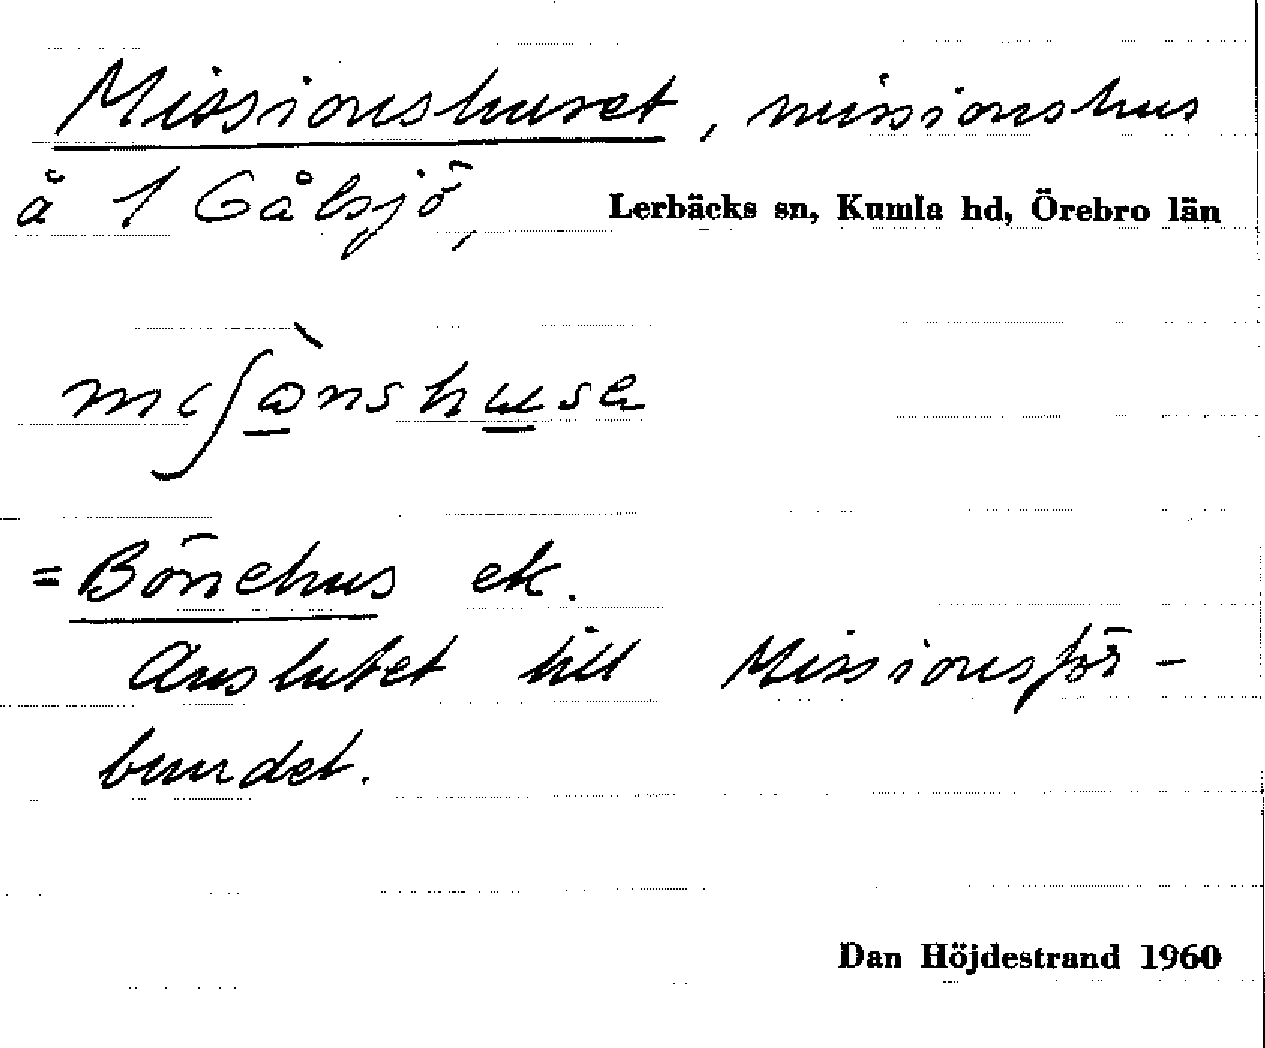 Missionshuset, missionshus
å 1 Gålsjö, Lerbäcks sn, Kumla hd, Örebro län
= Bönehus ek.
Anslutet till Missionsför-
bundet.
Dan Höjdestrand 1960